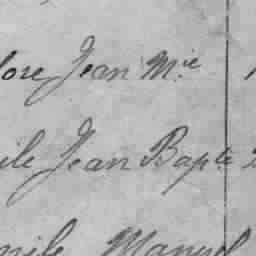 lore Jean M.ie
ile Jean Bapte
Manuel